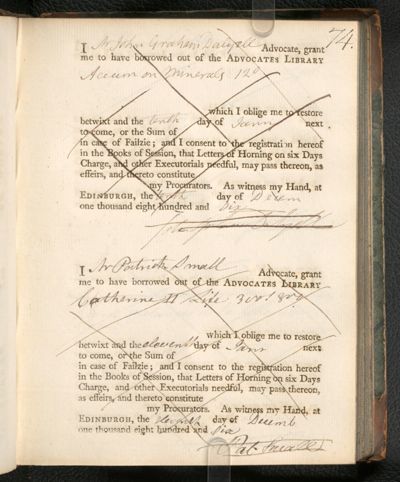 74.
I Mr John Graham Dalyell Advocate, grant
me to have borrowed out of the ADVOCATES LIBRARY
Accum on Minerals 12º
which I oblige me to restore
betwixt and the tenth day of Jany next
to come, or the Sum of
in case of Failzie; and I consent to the registration hereof
in the Books of Session, that Letters of Horning on six Days
Charge, and other Executorials needful, may pass thereon, as
effeirs, and thereto constitute
my Procurators. As witness my Hand, at
EDINBURGH, the tenth day of Decem
one thousand eight hundred and Six
I Mr Patrick Small Advocate, grant
me to have borrowed out of the ADVOCATES LIBRARY
Catherine II Life 3 vols 8vo
which I oblige me to restore
betwixt and the eleventh day of Jany next
to come, or the Sum of
in case of Failzie; and I consent to the registration hereof
in the Books of Session, that Letters of Horning on six Days
Charge, and other Executorials needful, may pass thereon,
as effeirs, and thereto constitute
my Procurators. As witness my Hand, at
EDINBURGH, the eleventh day of Decemb
one thousand eight hundred and Six
Pat. Small